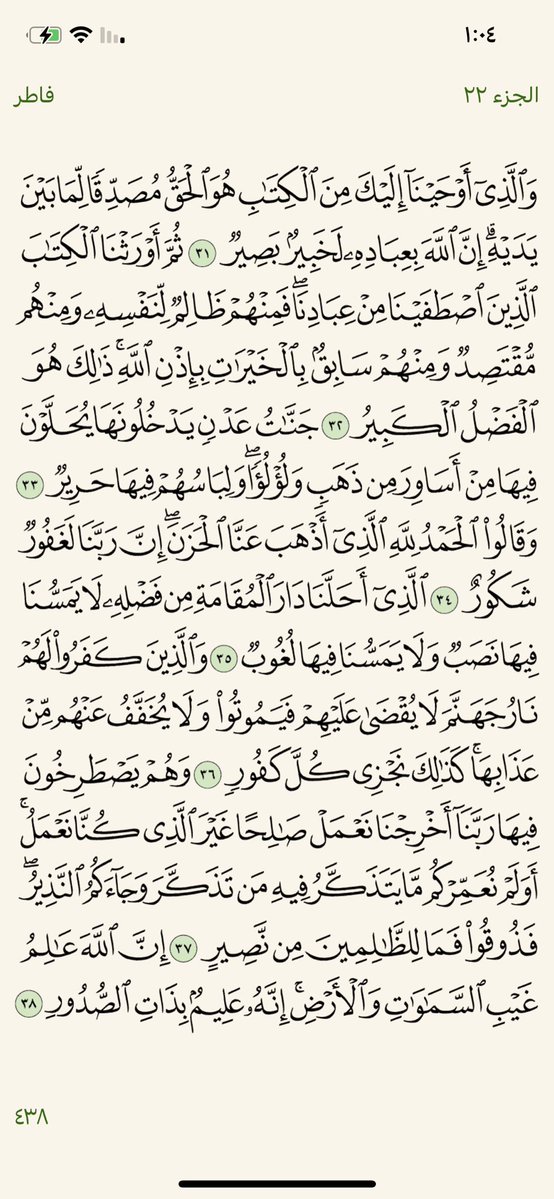 ١:٠٤
الجزء ٢٢
فاطر
وَٱلَّذِىٓ أَوۡحَيۡنَآ إِلَيۡكَ مِنَ ٱلۡكِتَٰبِ هُوَ ٱلۡحَقُّ مُصَدِّقٗا لِّمَا بَيۡنَ
يَدَيۡهِۗ إِنَّ ٱللَّهَ بِعِبَادِهِۦ لَخَبِيرُۢ بَصِيرٞ ٣١ ثُمَّ أَوۡرَثۡنَا ٱلۡكِتَٰبَ
ٱلَّذِينَ ٱصۡطَفَيۡنَا مِنۡ عِبَادِنَاۖ فَمِنۡهُمۡ ظَالِمٞ لِّنَفۡسِهِۦ وَمِنۡهُم
مُّقۡتَصِدٞ وَمِنۡهُمۡ سَابِقُۢ بِٱلۡخَيۡرَٰتِ بِإِذۡنِ ٱللَّهِۚ ذَٰلِكَ هُوَ
ٱلۡفَضۡلُ ٱلۡكَبِيرُ ٣٢ جَنَّٰتُ عَدۡنٖ يَدۡخُلُونَهَا يُحَلَّوۡنَ
فِيهَا مِنۡ أَسَاوِرَ مِن ذَهَبٖ وَلُؤۡلُؤٗاۖ وَلِبَاسُهُمۡ فِيهَا حَرِيرٞ ٣٣
وَقَالُواْ ٱلۡحَمۡدُ لِلَّهِ ٱلَّذِىٓ أَذۡهَبَ عَنَّا ٱلۡحَزَنَۖ إِنَّ رَبَّنَا لَغَفُورٞ
شَكُورٌ ٣٤ ٱلَّذِىٓ أَحَلَّنَا دَارَ ٱلۡمُقَامَةِ مِن فَضۡلِهِۦ لَا يَمَسُّنَا
فِيهَا نَصَبٞ وَلَا يَمَسُّنَا فِيهَا لُغُوبٞ ٣٥ وَٱلَّذِينَ كَفَرُواْ لَهُمۡ
نَارُ جَهَنَّمَ لَا يُقۡضَىٰ عَلَيۡهِمۡ فَيَمُوتُواْ وَلَا يُخَفَّفُ عَنۡهُم مِّنۡ
عَذَابِهَاۚ كَذَٰلِكَ نَجۡزِى كُلَّ كَفُورٖ ٣٦ وَهُمۡ يَصۡطَرِخُونَ
فِيهَا رَبَّنَآ أَخۡرِجۡنَا نَعۡمَلۡ صَٰلِحًا غَيۡرَ ٱلَّذِى كُنَّا نَعۡمَلُۚ
أَوَلَمۡ نُعَمِّرۡكُم مَّا يَتَذَكَّرُ فِيهِ مَن تَذَكَّرَ وَجَآءَكُمُ ٱلنَّذِيرُۖ
فَذُوقُواْ فَمَا لِلظَّٰلِمِينَ مِن نَّصِيرٍ ٣٧ إِنَّ ٱللَّهَ عَٰلِمُ
غَيۡبِ ٱلسَّمَٰوَٰتِ وَٱلۡأَرۡضِۚ إِنَّهُۥ عَلِيمُۢ بِذَاتِ ٱلصُّدُورِ ٣٨
٤٣٨